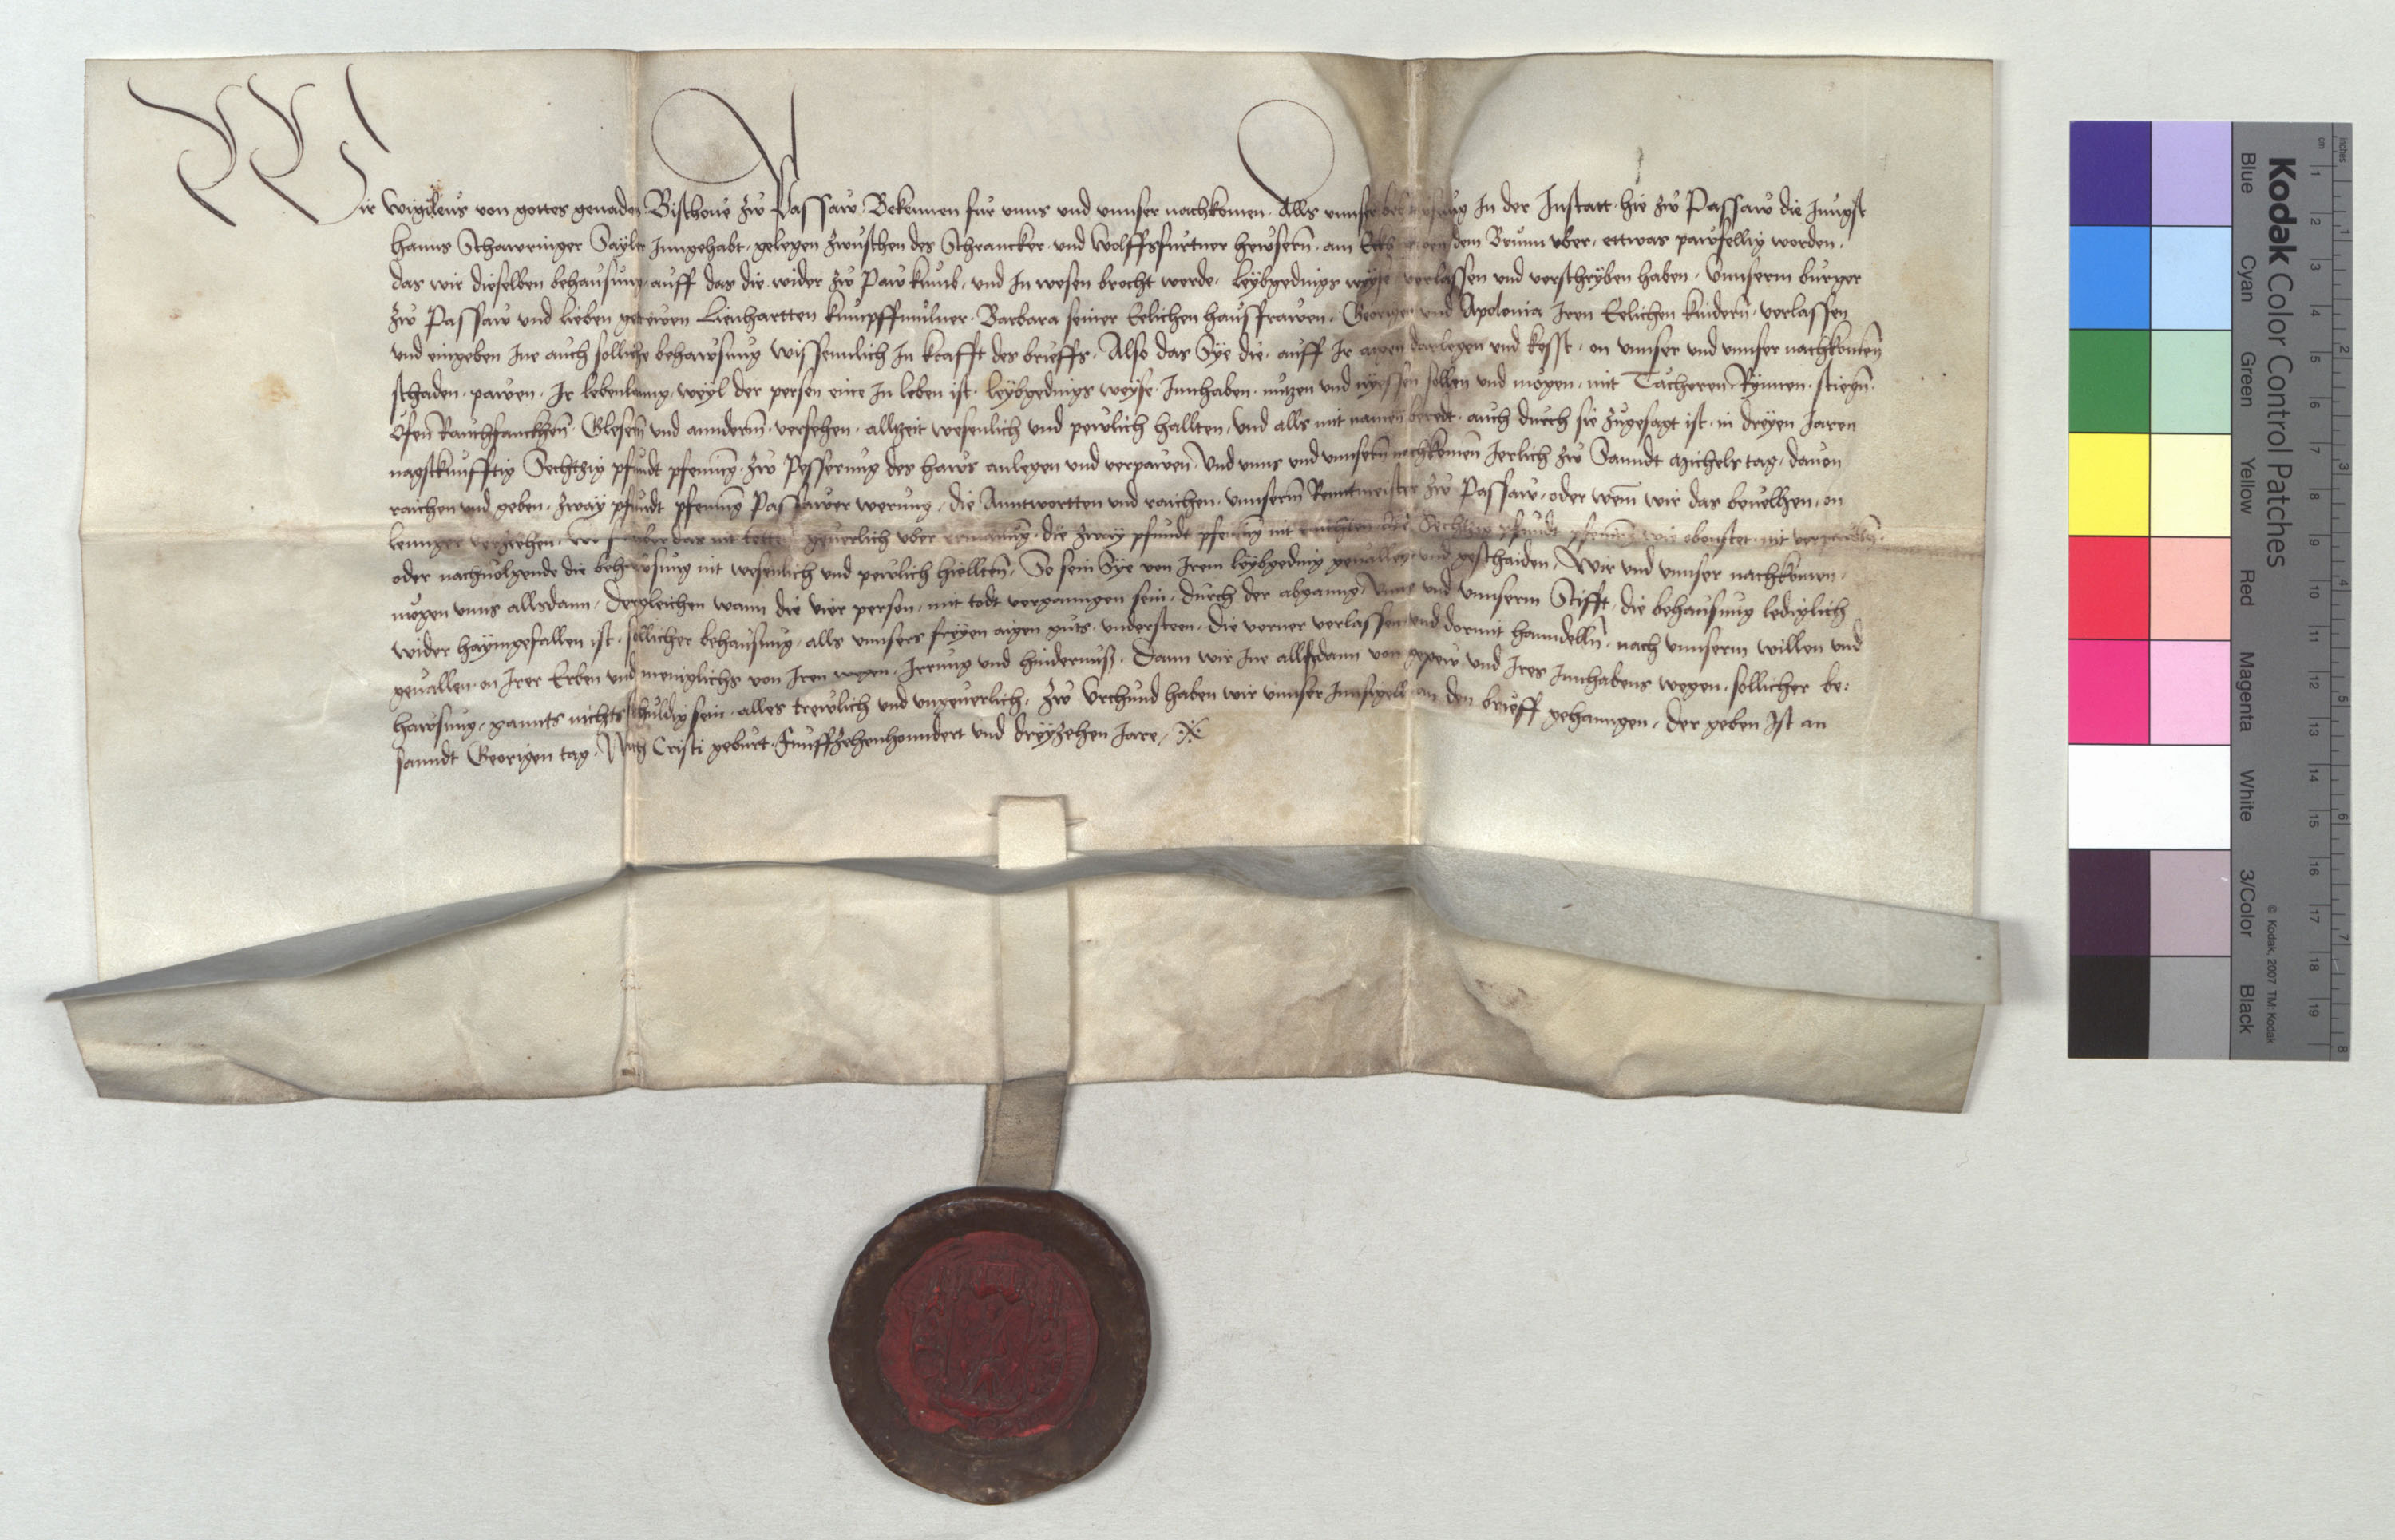 Wir Wigileus von gottes genaden Bischoue zw Passaw Bekennen fur vnns vnd vnnser nachkomen. Alls vnnser behawsung In der Instatt hie zw Passaw die Jungst
hanns Schawringer Sayler Inngehabt, gelegen zwuschen des Schrancker vnd Wolffsfurtner hewsern, am dem Brunn vber, ettwas pawfellig worden,
das wir dieselben behausung auff das die wider zw Paw kumb, vnd In wesen brocht werde, leybgedings weyse verlassen vnd verschryben haben, Vnnserm burger
zw Passaw vnd lieben getrewen Lienhartten kumpffmulner, Barbara seiner Eelichen hausfrawen, Georigen vnd Apolonia Iren Eelichen kindern, verlassen
vnd eingeben Ine auch solliche behawsung wissennlich In krafft des brieffs, Also das Sye die, auff Ir aigen darlegen vnd kosst, on vnnser vnd vnnser nachkomen
schaden, pawen, Ir lebenlanng, weyl der person eine In leben ist, leybgedings weyse, Innhaben, nutzen vnd nyessen sollen vnd mogen, mit Tacheren, Rynnen, stiegn,
Ofen Rauchfanckhen, Glesern vnd annderm, versehen, alltzeit wesenlich vnd pewlich hallten, vnd alls mit namen beredt, auch durch sie zugesagt ist, in dreyen Jaren
nagstkunfftig Sechtzig pfundt pfening, zw Pesserung des haws anlegen vnd verpawen, Vnd vnns vnd vnnsern nachkomen Jerlich zw Sanndt Michels tag, dauon
raichen vnd geben, zway pfundt pfening Passawer werung, die Anntwortten vnd raichen, vnnserm Renntmeister zw Passaw, oder wem wir das beuelhen, on
lennger vertziehen, wo sy aber das nit tetten geuerlich vber ermanung, die zway pfundt pfening nit raichten die Sechtzig pfundt pfening wie obenstet, nit verpawtn,
oder nachuolgende die behawsung nit wesenlich vnd pewlich hiellten, So sein Sye von Irem leybgeding geuallen vnd geschaiden, Wir vnd vnnser nachkomen,
mogen vnns allsdann, dergleichen wann die vier person, mit todt vergangen sein, durch der abganng, vnns vnd vnnserm Stifft, die behausung lediglich
wider hayimgefallen ist, sollicher behausung, alls vnnsers freyen aigen guts, vndersteen, die verner verlassen vnd dormit hanndelln, nach vnnserm willen vnd
geuallen, on Irer Erben vnd meniglichs von Iren wegen, Irrung vnd hindernuß, Dann wir Ine allssdann von gepew vnd Ires Innhabens wegen, sollicher be:
hawsung, gannts nichts schuldig sein, alles trewlich vnd vngeuerlich, Zw Vrchund haben wir vnnser Innsigell an den brieff gehanngen, der geben Ist an
sanndt Georigen tag, Nach Cristi geburt, Funffzehenhonndert vnd dreyzehen Jare,
Kodak Color Control Patches
Blue Cyan Green Yellow Red Magenta White 3/Color Black
© Kodak, 2007 TM: Kodak
inches 1 2 3 4 5 6 7 8
cm 1 2 3 4 5 6 7 8 9 10 11 12 13 14 15 16 17 18 19